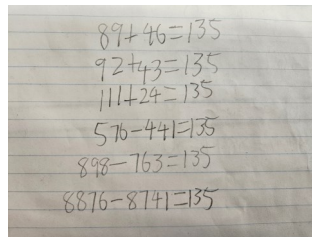 89+46=135
92+43=135
111+24=135
576-441=135
898-763=135
8876-8741=135